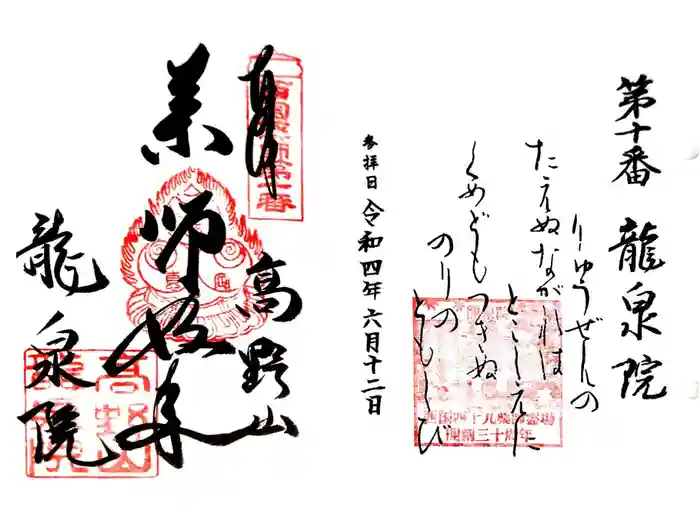 第十番 龍泉院
りゅうぜんの
たえぬながれは
とこしえに
くめどもつきぬ
のりの
ともしび
参拝日 令和四年六月十二日
西国四十九薬師霊場
開創三十周年
奉拝
高野山
薬師如来
龍泉院